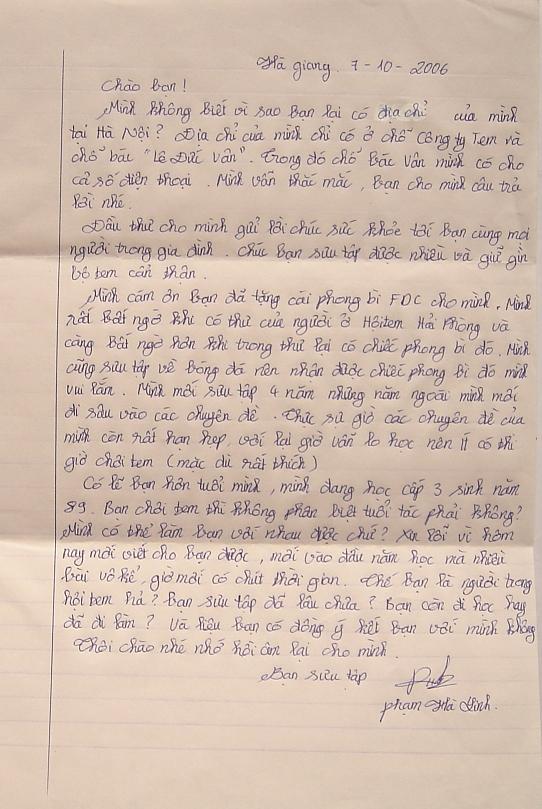 Hà giang. 7-10-2006
Chào bạn!
Mình không biết vì sao Bạn lại có địa chỉ của mình
tại Hà Nội? Địa chỉ của mình chỉ có ở chỗ Công ty Tem và
chỗ bác "Lê Đức Vân". Trong đó chỗ Bác Vân mình có cho
cả số điện thoại. Mình vẫn thắc mắc, Bạn cho mình câu trả
lời nhé.
Đầu thư cho mình gửi lời chúc sức khỏe tới Bạn cùng mọi
người trong gia đình. Chúc Bạn sưu tập được nhiều và giữ gìn
bộ tem cẩn thận.
Mình cám ơn Bạn đã tặng cái phong bì FDC cho mình. Mình
rất Bất ngờ khi có thư của người ở Hội tem Hải Phòng và
càng Bất ngờ hơn khi trong thư lại có chiếc phong bì đó. Mình
cũng sưu tập về bóng đá nên nhận được chiếc phong bì đó mình
vui lắm. Mình mới sưu tập 4 năm nhưng năm ngoái mình mới
đi sâu vào các chuyên đề. Thực sự giờ các chuyên đề của
mình còn rất hạn hẹp, với lại giờ vẫn lo học nên ít có thì
giờ chơi tem (mặc dù rất thích)
Có lẽ Bạn hơn tuổi mình, mình đang học cấp 3 sinh năm
89. Bạn chơi tem thì không phân biệt tuổi tác phải không?
Mình có thể làm bạn với nhau được chứ? Xin lỗi vì hôm
nay mới viết cho Bạn được, mới vào đầu năm học mà nhiều
bài vô kể, giờ mới có chút thời gian. Thế Bạn là người trong
hội tem hả? Bạn sưu tập đã lâu chưa? Bạn còn đi học hay
đã đi làm? Và liệu Bạn có đồng ý kết Bạn với mình không
Thôi chào nhé nhớ hồi âm lại cho mình.
Bạn sưu tập
phạm Hà